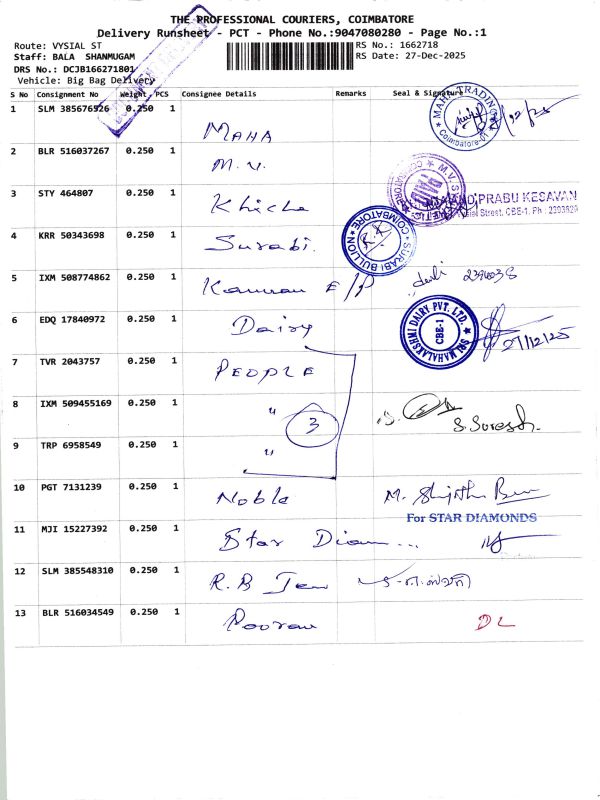 THE PROFESSIONAL COURIERS, COIMBATORE
Delivery Runsheet - PCT - Phone No.:9047080280 - Page No.:1
Route: VYSIAL ST RS No.: 1662718
Staff: BALA SHANMUGAM RS Date: 27-Dec-2025
DRS No.: DCJB166271801
Vehicle: Big Bag Delivery
S No Consignment No Weight PCS Consignee Details Remarks Seal & Signature
1 SLM 385676526 0.250 1 MAHA
MAHA TRADING
Coimbatore-01
2 BLR 516037267 0.250 1 M.V.
3 STY 464807 0.250 1 Khicha
PRABU KESAVAN
Street. CBE-1. Ph : 2393529
4 KRR 50343698 0.250 1 Surabi.
SURABI BULLION COIMBATORE
5 IXM 508774862 0.250 1 E/P
6 EDQ 17840972 0.250 1 Dairy
SRI MAHALAKSHMI DAIRY PVT. LTD.
CBE-1
27/12/25
7 TVR 2043757 0.250 1 PEOPLE
8 IXM 509455169 0.250 1 "
3
S. Suresh.
9 TRP 6958549 0.250 1 "
10 PGT 7131239 0.250 1 Noble
For STAR DIAMONDS
11 MJI 15227392 0.250 1 Star Diam...
12 SLM 385548310 0.250 1 R.B Jew
13 BLR 516034549 0.250 1 Pooran
DL